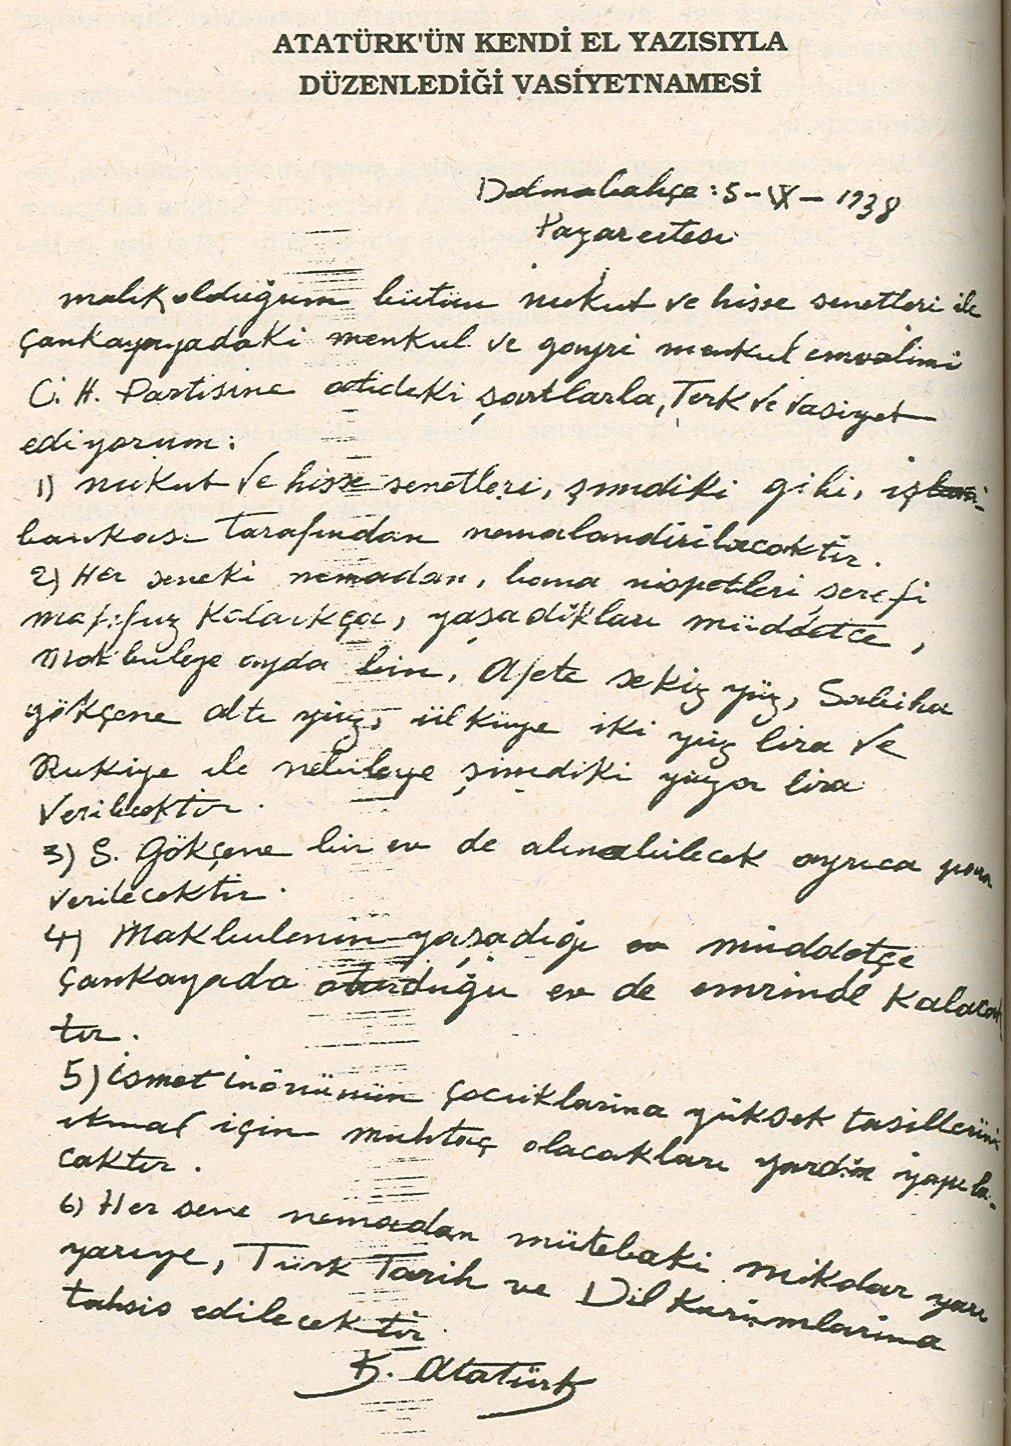 ATATÜRK'ÜN KENDİ EL YAZISIYLA
DÜZENLEDİĞİ VASİYETNAMESİ
Dolmabahçe: 5-IX-1938
Pazarertesi
malik olduğum bütün nukut ve hisse senetleri ile
Çankayayadaki menkul ve gayri menkul emvalimi
C. H. Partisine atideki şartlarla, Terk ve vasiyet
ediyorum:
1) nukut ve hisse senetleri, şimdiki gibi, iş
bankası tarafından nemalandirilacaktir.
2) Her seneki nemadan, bana nispetleri şerefi
mahfuz kaldıkça, yaşadıkları müddetce,
Makbuleye ayda bin, Afete sekiz yüz, Sabiha
gökçene altı yüz, ülküye iki yüz lira ve
Rukiye ile nebileye şimdiki yüzer lira
verilecektir.
3) S. Gökçene bir ev de alınabilecek ayrıca para
verilecektir.
4) Makbulenin yaşadığı müddetçe
Çankayada oturduğu ev de emrinde kalacak
tır.
5) ismet inönünün çocuklarına yüksek tasillerini
ikmal için muhtaç olacakları yardım yapıla-
caktır.
6) Her sene nemadan mütebaki mikdar yarı
yarıya, Türk Tarih ve Dil Kurumlarına
tahsis edilecektir.
K. Atatürk